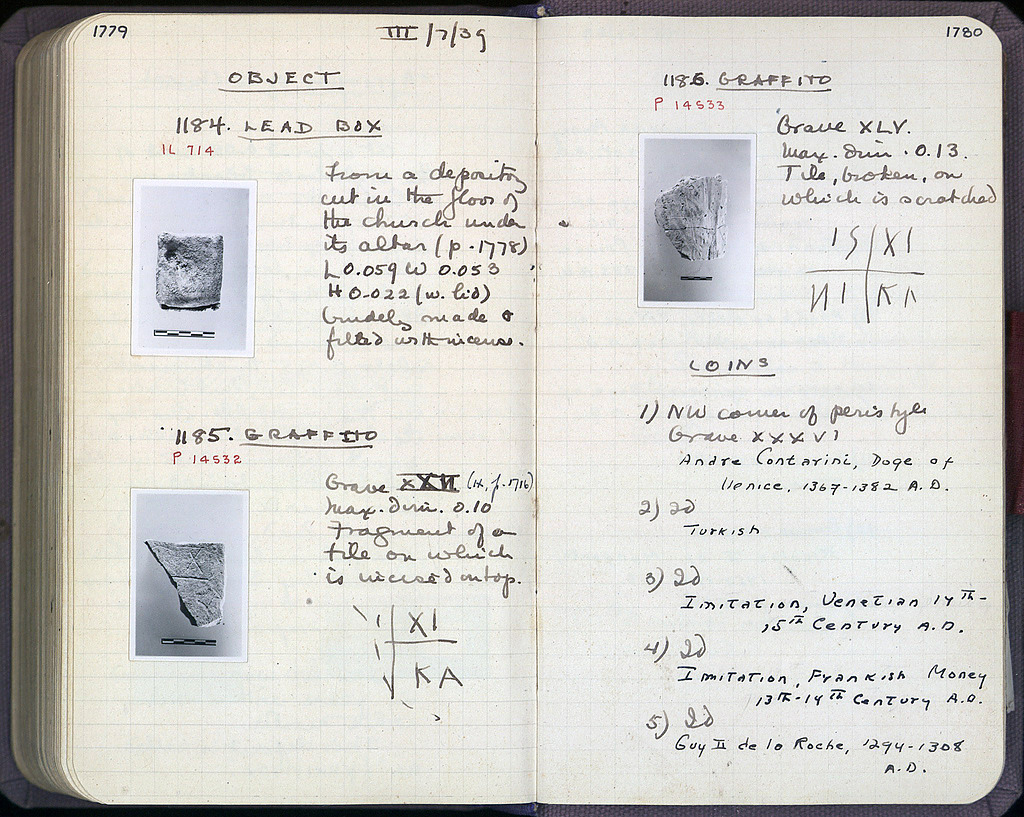 1779
III/7/39
OBJECT
1184. LEAD BOX
IL 714
From a depository
cut in the floor of
the church under
its altar (p. 1778)
L 0.059 W 0.053
H 0.022 (w. lid)
Crudely made &
filled with incense.
1185. GRAFFITO
P 14532
Grave XXVI (ix, p. 1716)
Max. dim. 0.10
Fragment of a
tile on which
is incised on top.
XI
KA
1780
1186. GRAFFITO
P 14533
Grave XLV.
Max. dim. 0.13.
Tile, broken, on
which is scratched
IS XI
ИI KA
COINS
1) NW corner of peristyle
Grave XXXVI
Andre Contarini, Doge of
Venice, 1367-1382 A.D.
2) id
Turkish
3) id
Imitation, Venetian 14th-
15th Century A.D.
4) id
Imitation, Frankish Money
13th-14th Century A.D.
5) id
Guy II de la Roche, 1294-1308
A.D.